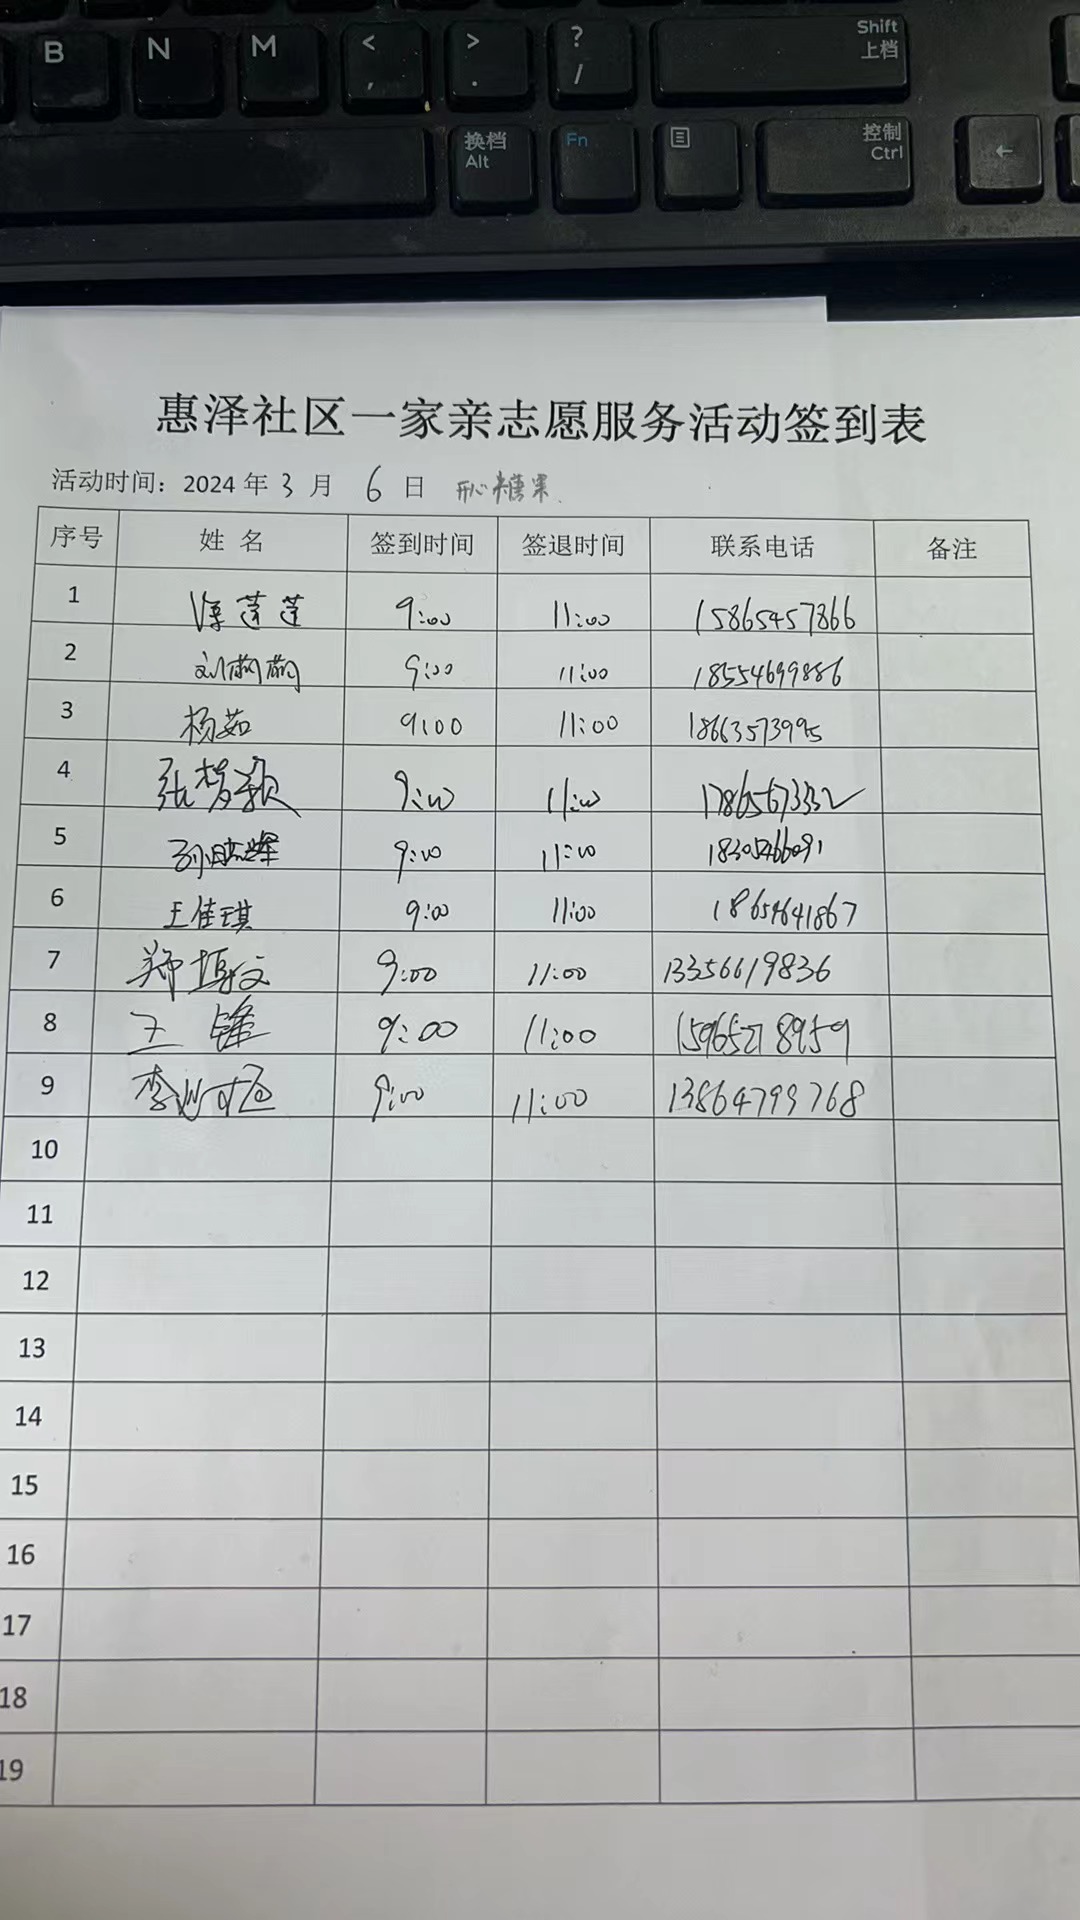 B N M < , > . ? / Shift 上档
换档 Alt Fn 控制 Ctrl ←
惠泽社区一家亲志愿服务活动签到表
活动时间：2024 年 3 月 6 日 开心糖果
序号 姓 名 签到时间 签退时间 联系电话 备注
1 莲莲 9:00 11:00 15865457866
2 刘 9:00 11:00 18554699886
3 杨茹 9:00 11:00 18663573995
4 张梦颖 9:00 11:00 17865673332
5 孙 9:00 11:00 18305466091
6 王佳琪 9:00 11:00 18654641867
7 郑博文 9:00 11:00 13356619836
8 王锋 9:00 11:00 15965278959
9 李 9:00 11:00 13864799768
10
11
12
13
14
15
16
17
18
19